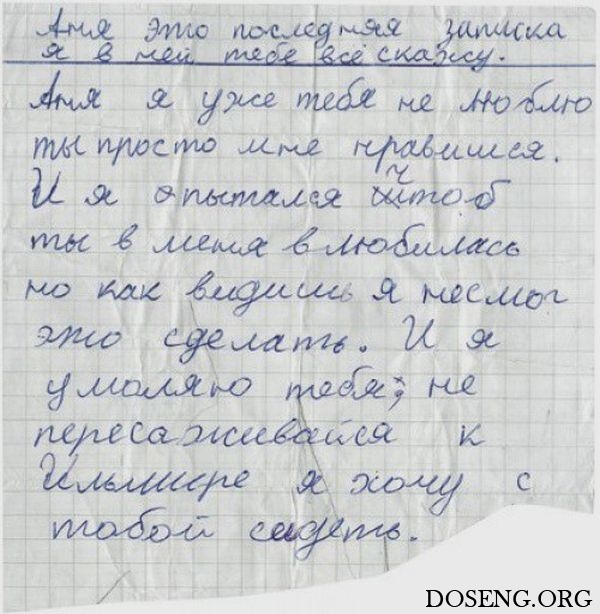 Аня это последняя записка
я в ней тебе всё скажу.
Аня я уже тебя не люблю
ты просто мне нравишся.
И я опытался чтоб
ты в меня влюбилась
но как видишь я несмог
это сделать. И я
умоляю тебя; не
пересаживайся к
я хочу с
тобой сидеть.
DOSENG.ORG